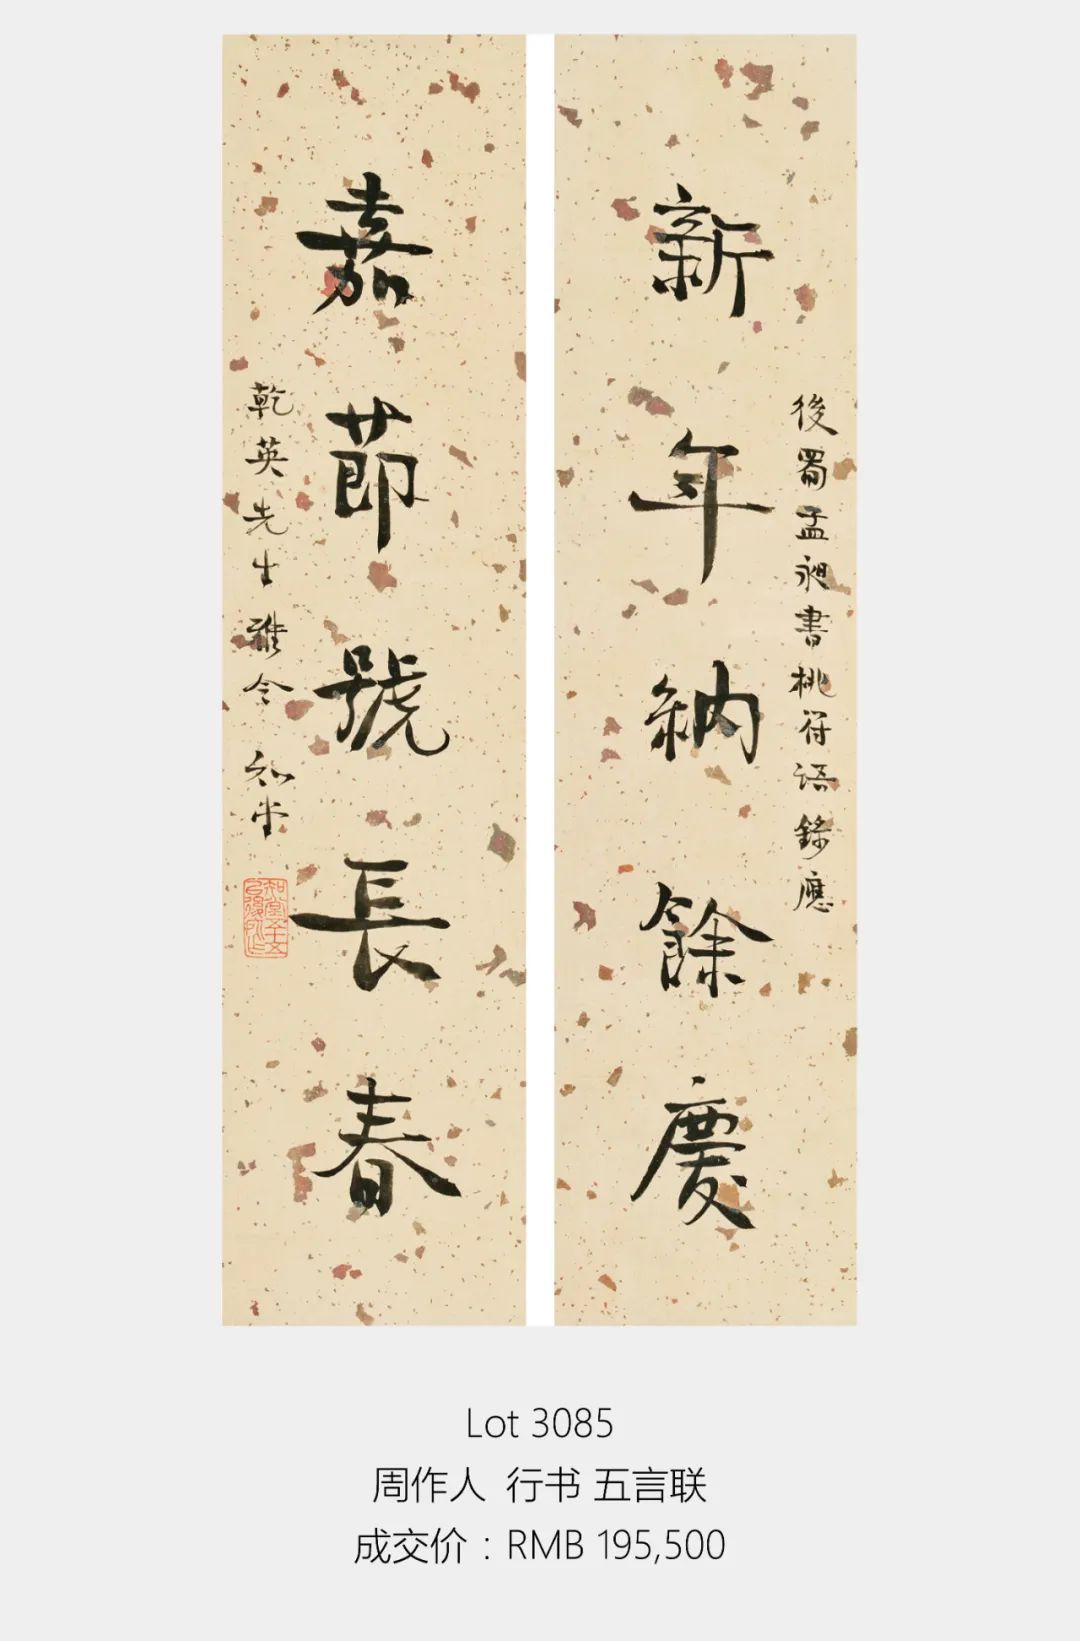 新年納餘慶
後蜀孟昶書桃符語錄應
嘉節號長春
乾英先生雅令 知堂
知堂五十五
已後所作
Lot 3085
周作人 行书 五言联
成交价：RMB 195,500